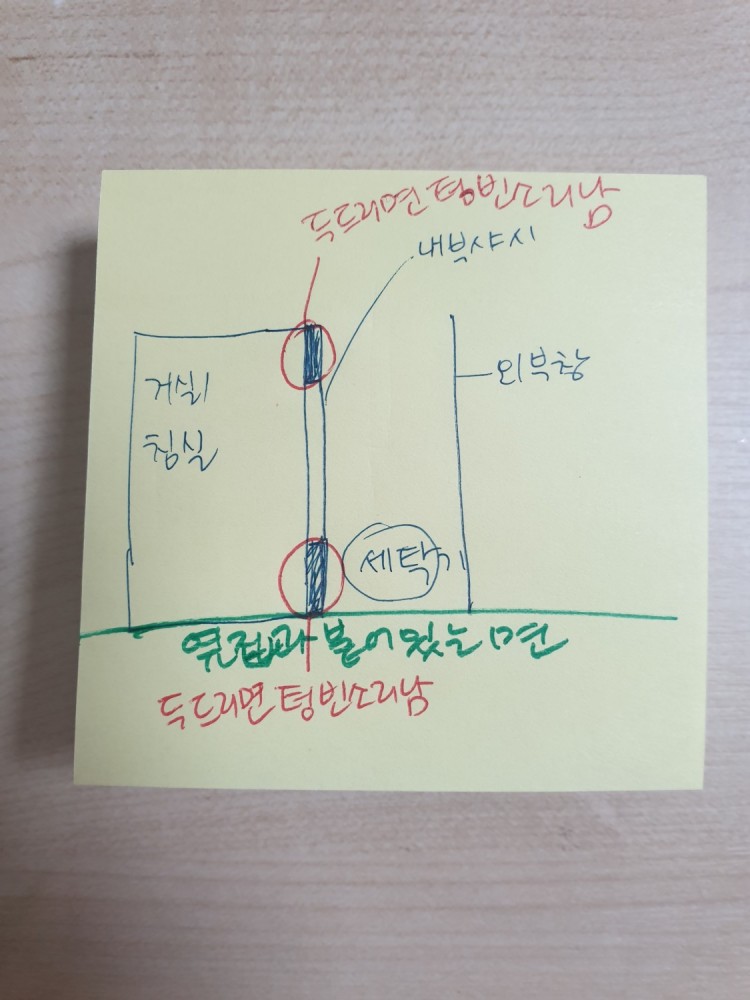 두드리면 텅빈소리남
내부샤시
외부창
거실
침실
세탁기
옆집과 붙어있는 면
두드리면 텅빈소리남